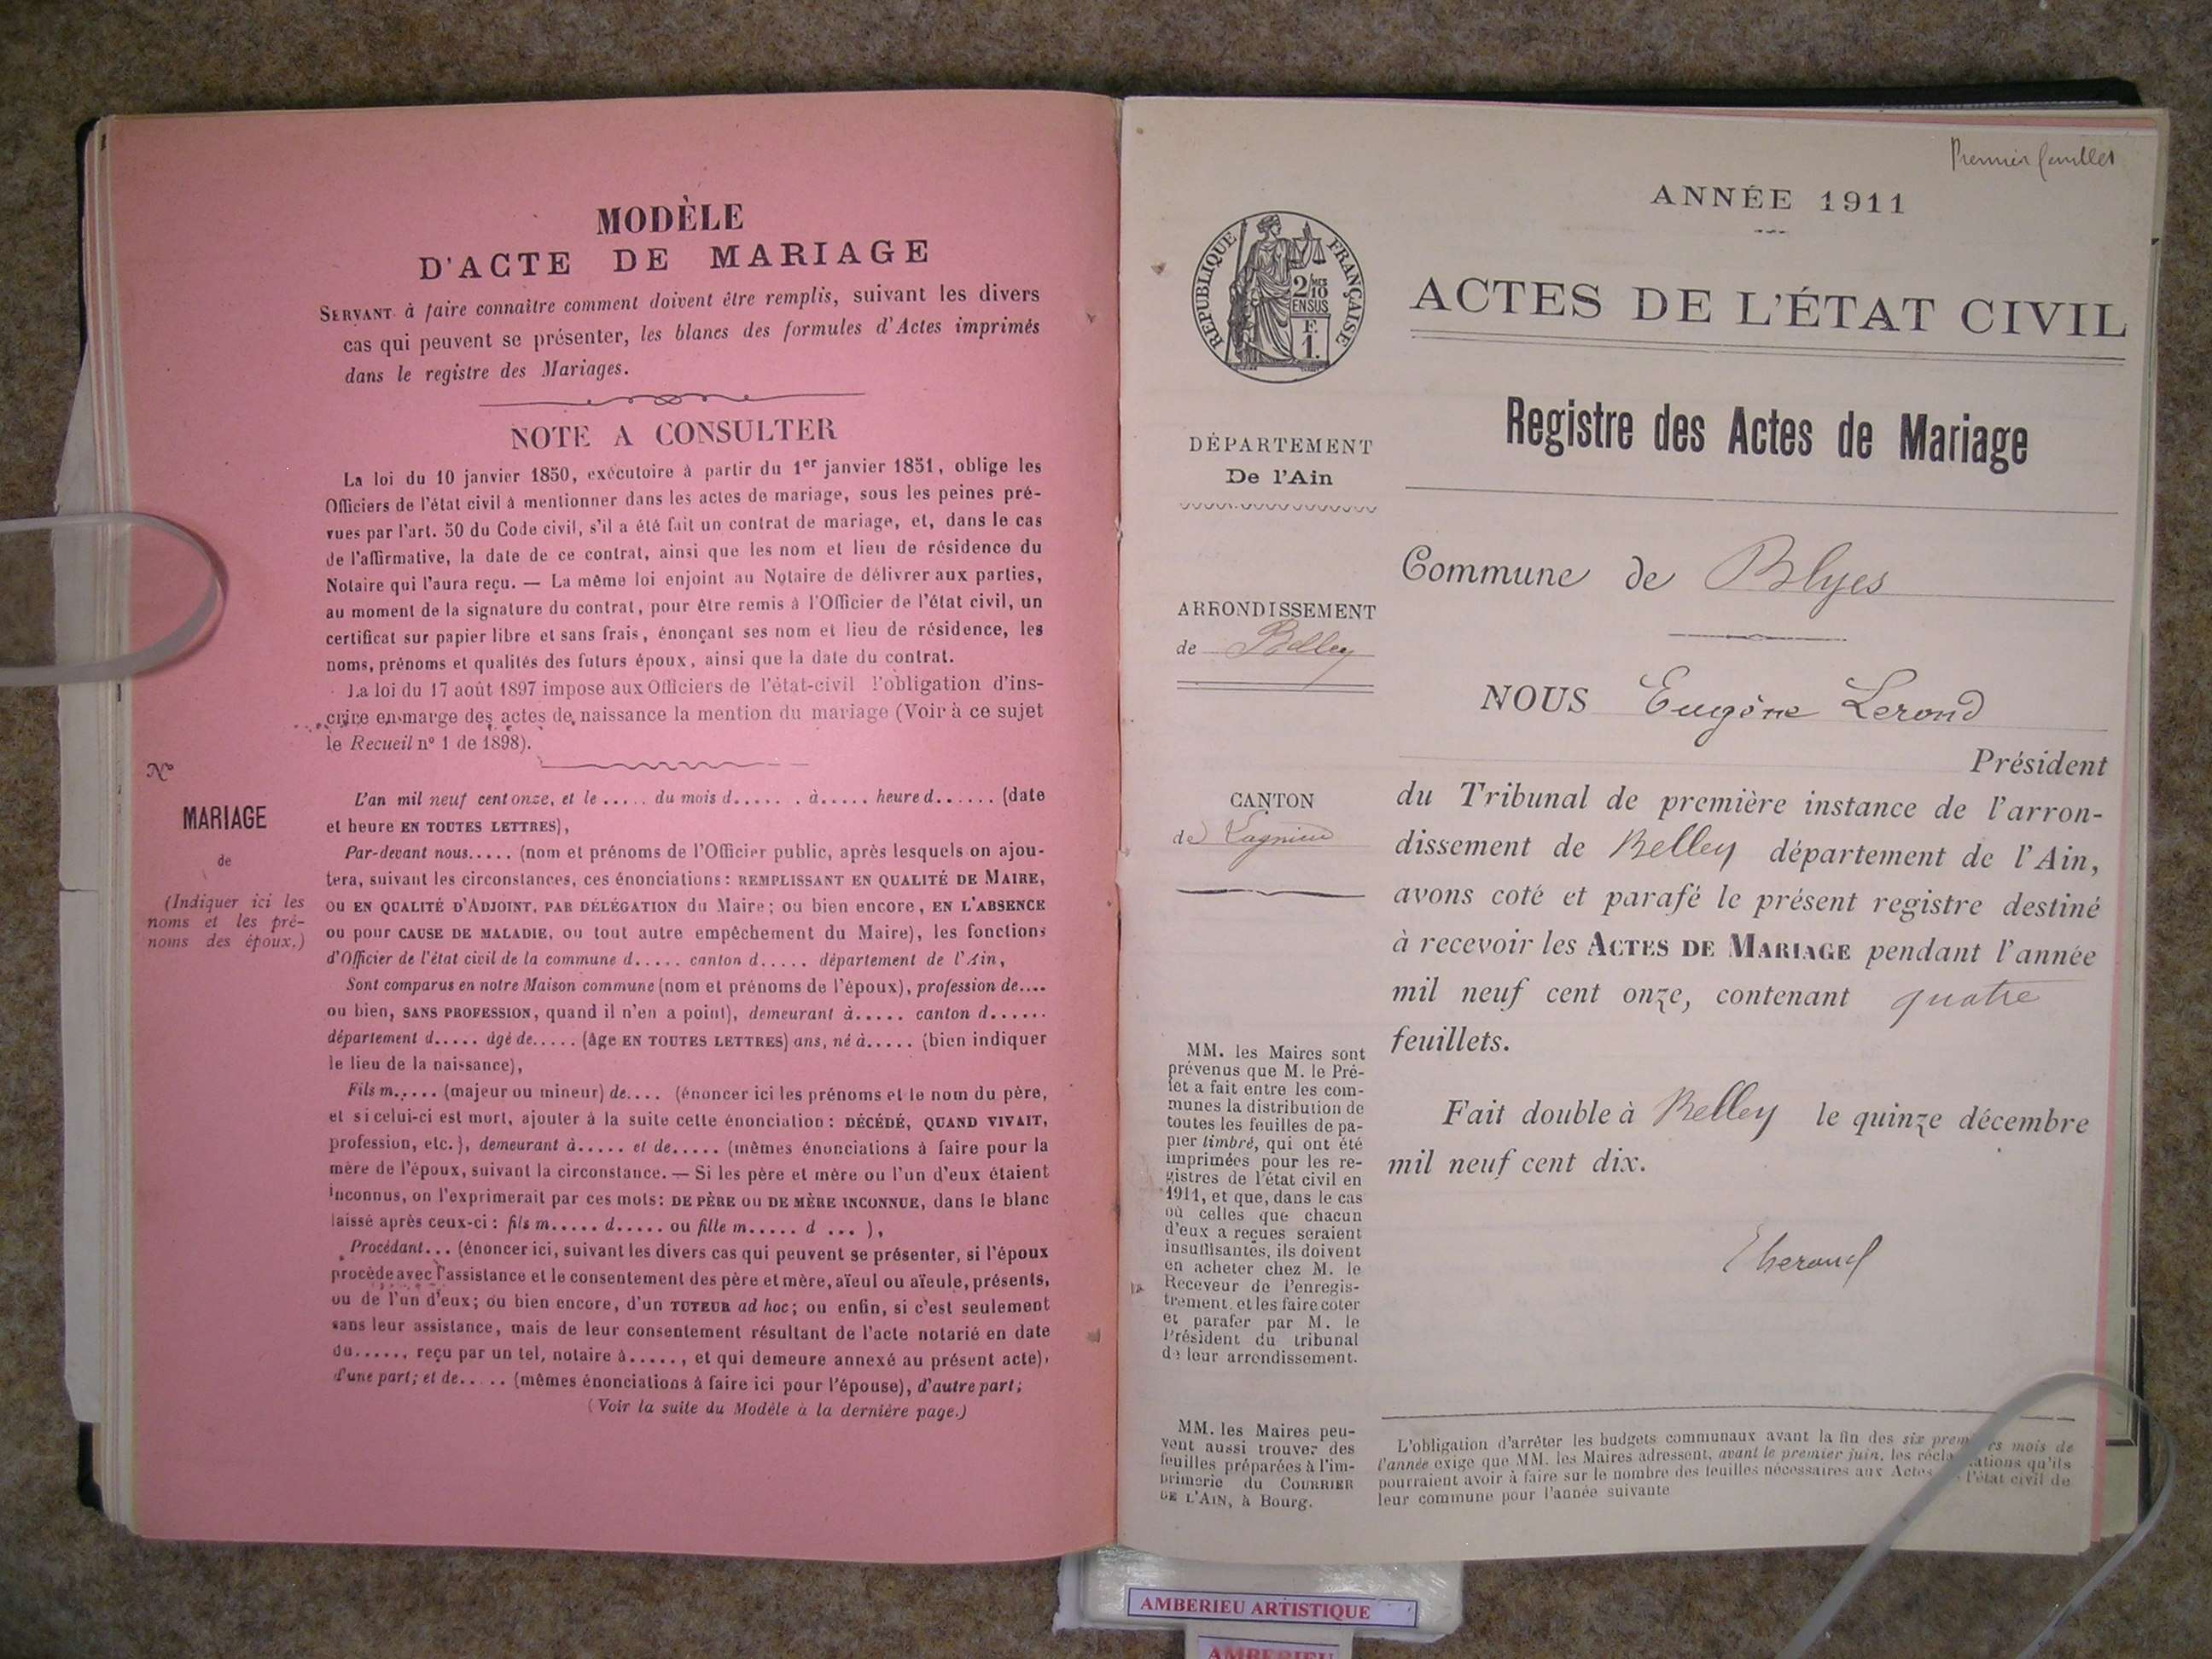 MODÈLE
D'ACTE DE MARIAGE
SERVANT à faire connaître comment doivent être remplis, suivant les divers
cas qui peuvent se présenter, les blancs des formules d'Actes imprimés
dans le registre des Mariages.
NOTE A CONSULTER
La loi du 10 janvier 1850, exécutoire à partir du 1er janvier 1851, oblige les
Officiers de l'état civil à mentionner dans les actes de mariage, sous les peines pré-
vues par l'art. 50 du Code civil, s'il a été fait un contrat de mariage, et, dans le cas
de l'affirmative, la date de ce contrat, ainsi que les nom et lieu de résidence du
Notaire qui l'aura reçu. — La même loi enjoint au Notaire de délivrer aux parties,
au moment de la signature du contrat, pour être remis à l'Officier de l'état civil, un
certificat sur papier libre et sans frais, énonçant ses nom et lieu de résidence, les
noms, prénoms et qualités des futurs époux, ainsi que la date du contrat.
La loi du 17 août 1897 impose aux Officiers de l'état-civil l'obligation d'ins-
crire en marge des actes de naissance la mention du mariage (Voir à ce sujet
le Recueil nº 1 de 1898).
Nº
MARIAGE
de
(Indiquer ici les
noms et les pré-
noms des époux.)
L'an mil neuf cent onze, et le ..... du mois d...... . à..... heure d...... (date
et heure EN TOUTES LETTRES),
Par-devant nous..... (nom et prénoms de l'Officier public, après lesquels on ajou-
tera, suivant les circonstances, ces énonciations : REMPLISSANT EN QUALITÉ DE MAIRE,
ou EN QUALITÉ D'ADJOINT, PAR DÉLÉGATION du Maire; ou bien encore, EN L'ABSENCE
ou pour CAUSE DE MALADIE, ou tout autre empêchement du Maire), les fonctions
d'Officier de l'état civil de la commune d..... canton d..... département de l'Ain,
Sont comparus en notre Maison commune (nom et prénoms de l'époux), profession de....
ou bien, SANS PROFESSION, quand il n'en a point), demeurant à..... canton d......
département d..... âgé de..... (âge EN TOUTES LETTRES) ans, né à..... (bien indiquer
le lieu de la naissance),
Fils m..... (majeur ou mineur) de.... (énoncer ici les prénoms et le nom du père,
et si celui-ci est mort, ajouter à la suite cette énonciation : DÉCÉDÉ, QUAND VIVAIT,
profession, etc.), demeurant à..... et de..... (mêmes énonciations à faire pour la
mère de l'époux, suivant la circonstance. — Si les père et mère ou l'un d'eux étaient
inconnus, on l'exprimerait par ces mots : DE PÈRE OU DE MÈRE INCONNUE, dans le blanc
laissé après ceux-ci : fils m..... d..... ou fille m..... d ... ),
Procédant... (énoncer ici, suivant les divers cas qui peuvent se présenter, si l'époux
procède avec l'assistance et le consentement des père et mère, aïeul ou aïeule, présents,
ou de l'un d'eux; ou bien encore, d'un TUTEUR ad hoc; ou enfin, si c'est seulement
sans leur assistance, mais de leur consentement résultant de l'acte notarié en date
du......, reçu par un tel, notaire à....., et qui demeure annexé au présent acte),
d'une part; et de..... (mêmes énonciations à faire ici pour l'épouse), d'autre part;
(Voir la suite du Modèle à la dernière page.)
Premier feuillet
ANNÉE 1911
RÉPUBLIQUE FRANÇAISE
2/10
EN SUS
F.
1.
ACTES DE L'ÉTAT CIVIL
Registre des Actes de Mariage
DÉPARTEMENT
De l'Ain
ARRONDISSEMENT
de Belley
CANTON
de Lagnieu
Commune de Blyes
NOUS Eugène Lerond
Président
du Tribunal de première instance de l'arron-
dissement de Belley département de l'Ain,
avons coté et parafé le présent registre destiné
à recevoir les ACTES DE MARIAGE pendant l'année
mil neuf cent onze, contenant quatre
feuillets.
Fait double à Belley le quinze décembre
mil neuf cent dix.
MM. les Maires sont
prévenus que M. le Pré-
fet a fait entre les com-
munes la distribution de
toutes les feuilles de pa-
pier timbré, qui ont été
imprimées pour les re-
gistres de l'état civil en
1911, et que, dans le cas
où celles que chacun
d'eux a reçues seraient
insuffisantes, ils doivent
en acheter chez M. le
Receveur de l'enregis-
trement, et les faire coter
et parafer par M. le
Président du tribunal
de leur arrondissement.
MM. les Maires peu-
vent aussi trouver des
feuilles préparées à l'im-
primerie du COURRIER
DE L'AIN, à Bourg.
L'obligation d'arrêter les budgets communaux avant la fin des six premiers mois de
l'année exige que MM. les Maires adressent, avant le premier juin, les réclamations qu'ils
pourraient avoir à faire sur le nombre des feuilles nécessaires aux Actes de l'état civil de
leur commune pour l'année suivante
AMBERIEU ARTISTIQUE
AMBERIEU